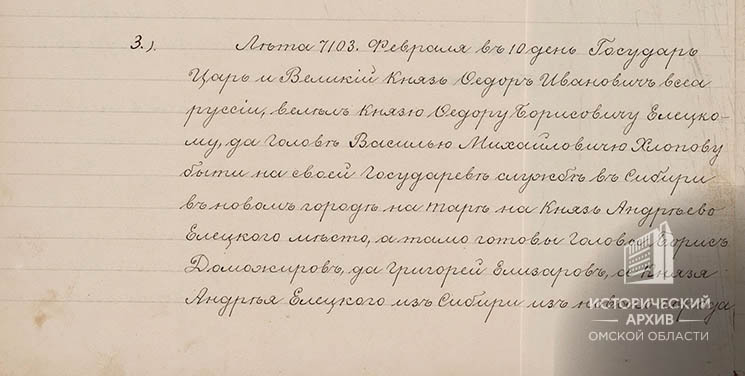 3.). Лѣта 7103. Февраля въ 10 день Государь
Царь и Великій Князь Ѳедоръ Ивановичъ всеа
руссіи, велѣлъ Князю Ѳедору Борисовичу Елецко-
му, да головѣ Василью Михайловичю Хлопову
быти на своей Государевѣ службѣ въ Сибири
въ новомъ городѣ на Тарѣ на Князь Андрѣево
Елецкого мѣсто, а тамо готовы Голова Борисъ
Доможировъ, да Григорей Елизаровъ, а Князя
Андрѣя Елецкого изъ Сибири изъ
ИСТОРИЧЕСКИЙ
АРХИВ
ОМСКОЙ ОБЛАСТИ